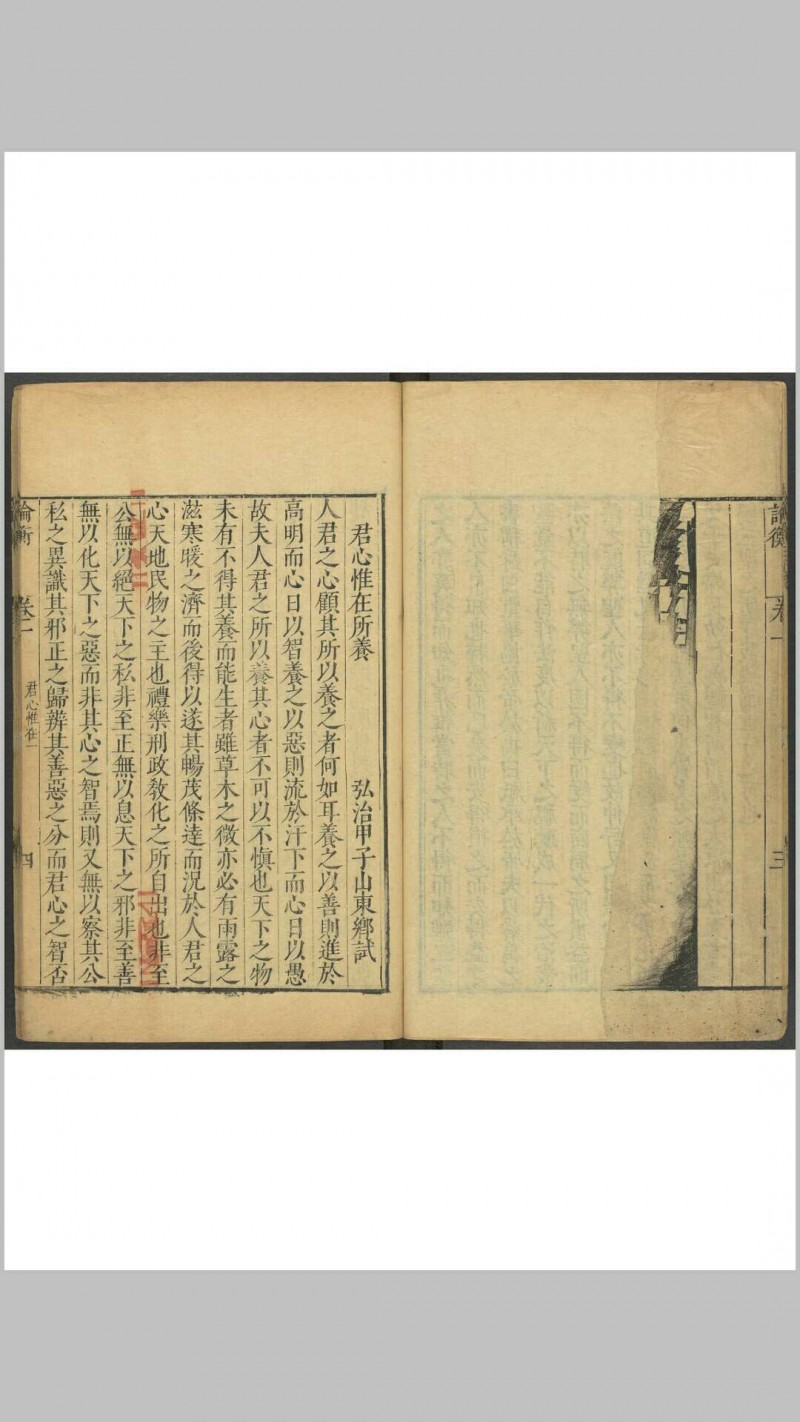 論衡 卷一 三
君心惟在所養 弘治甲子山東鄉試
人君之心顧其所以養之者何如耳養之以善則進於
高明而心日以智養之以惡則流於汗下而心日以愚
故夫人君之所以養其心者不可以不慎也天下之物
未有不得其養而能生者雖草木之微亦必有雨露之
滋寒暖之濟而後得以遂其暢茂條達而況於人君之
心天地民物之主也禮樂刑政教化之所自出也非至
公無以絕天下之私非至正無以息天下之邪非至善
無以化天下之惡而非其心之智焉則又無以察其公
私之異識其邪正之歸辨其善惡之分而君心之智否
論衡 卷一 君心惟在一 四